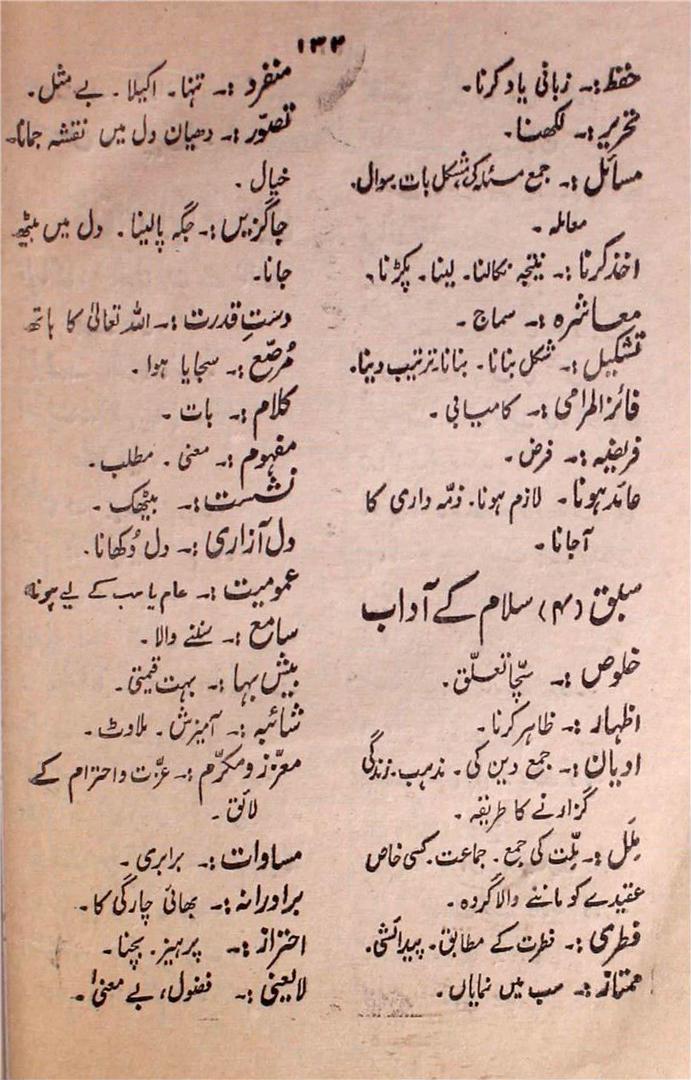 ۱۳۴
حفظ:۔ زبانی یاد کرنا۔
تحریر:۔ لکھنا۔
مسائل:۔ جمع مسئلہ کی مشکل بات سوال۔
معاملہ۔
اخذ کرنا:۔ نتیجہ نکالنا۔ لینا۔ پکڑنا۔
معاشرہ:۔ سماج۔
تشکیل:۔ شکل بنانا۔ بنانا ترتیب دینا۔
فائزالمرامی:۔ کامیابی۔
فریضہ:۔ فرض۔
عائد ہونا۔ لازم ہونا۔ ذمّہ داری کا
آجانا۔
سبق (۴) سلام کے آداب
خلوص:۔ سچّا تعلّق۔
اظہار:۔ ظاہر کرنا۔
ادیان:۔ جمع دین کی۔ مذہب۔ زندگی
گزارنے کا طریقہ۔
مِلَل:۔ مِلّت کی جمع۔ جماعت۔ کسی خاص
عقیدے کو ماننے والا گروہ۔
فطری:۔ فطرت کے مطابق۔ پیدائشی۔
ممتاز:۔ سب میں نمایاں۔
منفرد:۔ تنہا۔ اکیلا۔ بے مثل۔
تصوّر:۔ دھیان دل میں نقشہ جمانا۔
خیال۔
جاگزیں:۔ جگہ پالینا۔ دل میں بیٹھ
جانا۔
دستِ قدرت:۔ اللہ تعالیٰ کا ہاتھ
مُرصّع:۔ سجایا ہوا۔
کلام:۔ بات۔
مفہوم:۔ معنی۔ مطلب۔
نشست:۔ بیٹھک۔
دل آزاری:۔ دل دُکھانا۔
عمومیت:۔ عام یا سب کے لیے ہونا۔
سامع:۔ سننے والا۔
بیش بہا:۔ بہت قیمتی۔
شائبہ:۔ آمیزش۔ ملاوٹ۔
معزّز و مکرّم:۔ عزّت و احترام کے
لائق۔
مساوات:۔ برابری۔
برادرانہ:۔ بھائی چارگی کا۔
احتراز:۔ پرہیز۔ بچنا۔
لایعنی:۔ فضول، بے معنیٰ۔